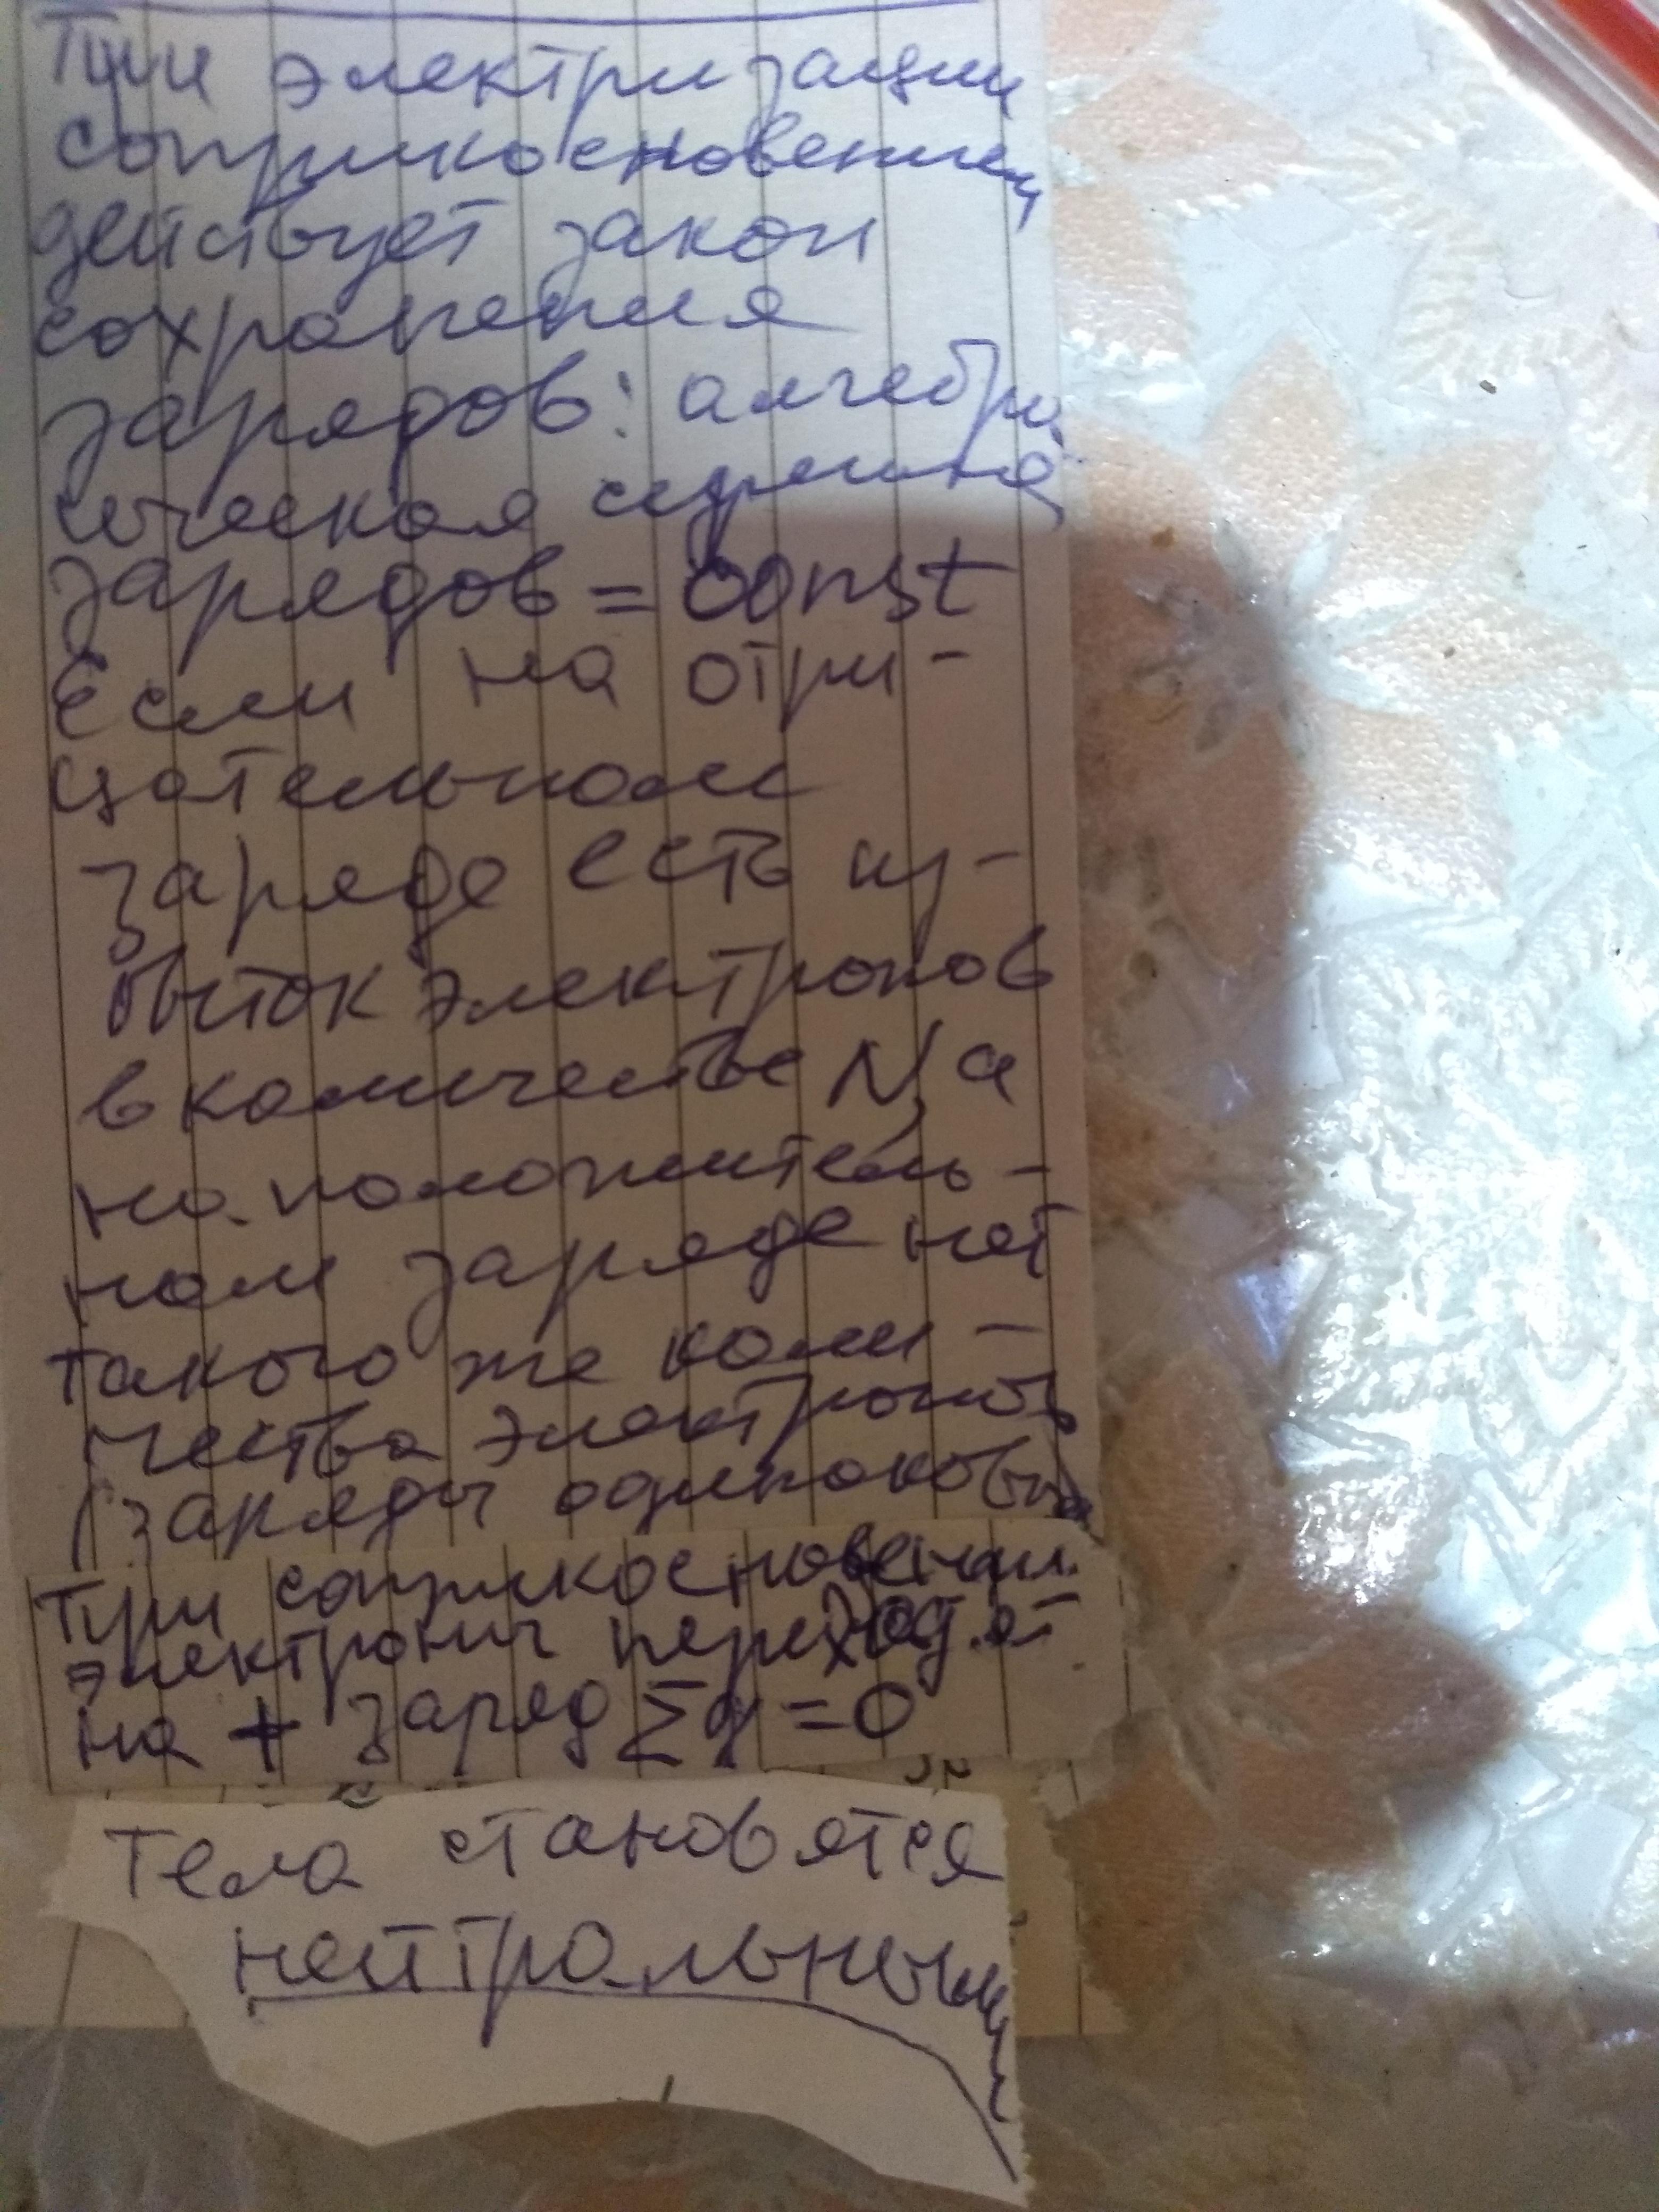 При электризации
соприкосновением
действует закон
сохранения
зарядов: алгебра
ическая сумма
зарядов = const
Если на отри-
цательном
заряде есть из-
быток электронов
в количестве N, а
на положитель-
ном заряде нет
такого же коли-
чества электронов
(заряды одинаковы
При соприкосновении
электроны переходят
на + заряд Σq = 0
Тела становятся
нейтральными